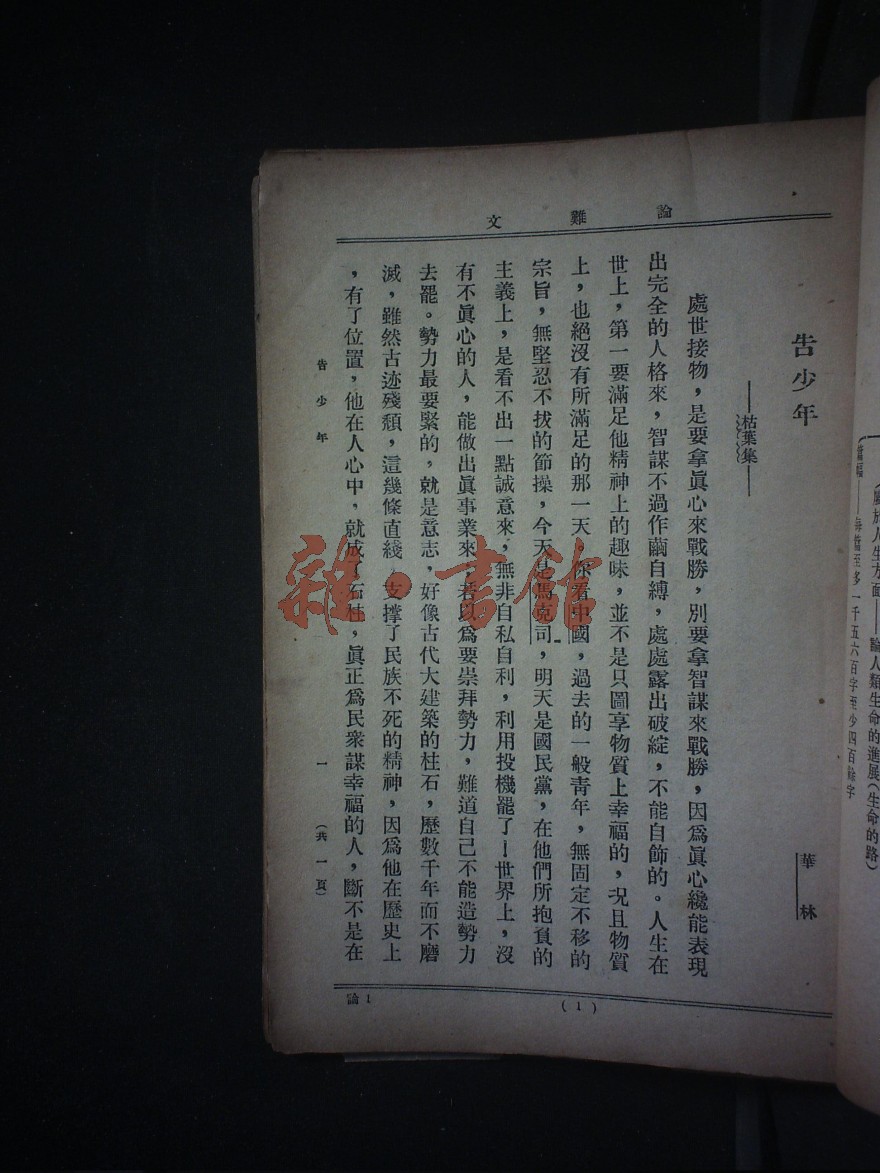 論雜文
告少年
——枯葉集——
華林
處世接物，是要拿眞心來戰勝，別要拿智謀來戰勝，因爲眞心纔能表現
出完全的人格來，智謀不過作繭自縛，處處露出破綻，不能自飾的。人生在
世上，第一要滿足他精神上的趣味，並不是只圖享物質上幸福的，况且物質
上，也絕沒有所滿足的那一天，你看中國，過去的一般靑年，無固定不移的
宗旨，無堅忍不拔的節操，今天是馬克司，明天是國民黨，在他們所抱負的
主義上，是看不出一點誠意來，無非自私自利，利用投機罷了！世界上，沒
有不眞心的人，能做出眞事業來，若以爲要崇拜勢力，難道自己不能造勢力
去罷。勢力最要緊的，就是意志，好像古代大建築的柱石，歷數千年而不磨
滅，雖然古迹殘頹，這幾條直綫，支撐了民族不死的精神，因爲他在歷史上
，有了位置，他在人心中，就成了石柱，眞正爲民衆謀幸福的人，斷不是在
告少年
一
（共一頁）
論1
(1)
雜·書館
（屬於人生方面——論人類生命的進展（生命的路）
篇幅——每篇至多一千五六百字至少四百餘字